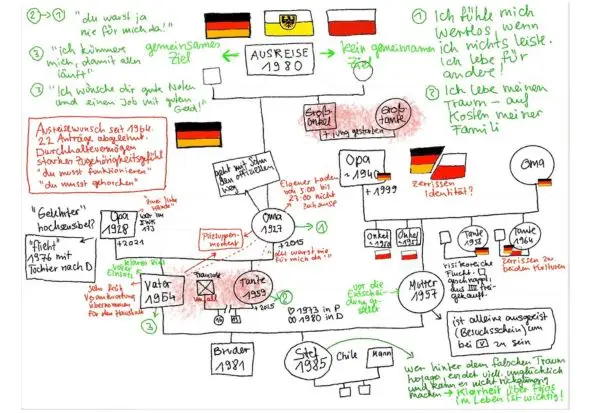 ② → ① "du warst ja
nie für mich da!"
③ "ich kümmere
mich, damit alles
läuft"
③ "Ich wünsche dir gute Noten
und einen Job mit gutem
Geld!"
gemeinsames
Ziel
AUSREISE
1980
kein gemeinsames
Ziel
① Ich fühle mich
wertlos, wenn
ich nichts leiste.
Ich lebe für
andere!
② Ich lebe meinen
Traum – auf
Kosten meiner
Familie
Ausreisewunsch seit 1964.
22 Anträge abgelehnt.
Durchhaltevermögen
starkes Zugehörigkeitsgefühl
"du musst funktionieren"
"du musst gehorchen"
Groß-
onkel
Groß-
tante
† jung gestorben
geht mit Sohn
den offiziellen
Weg
Eigener Laden
von 5:00 bis
23:00 nicht
zuhause
Opa
~1940
†1999
zerrissen
Identität?
Oma
"Gelehrter"
hochsensibel?
Opa
1928
†2021
war im
"flieht"
1976 mit
Tochter nach D
Oma
1927
†2015
"du warst nie
für mich da."
① 
Onkel
Onkel
Tante
1958
Tante
1964
zerrissen zu
beiden Kulturen
Flucht.
Vater
1954
Tante
1959
†2015
②
♡ 1973 in P
∞ 1980 in D
vor die
Entschei-
dung ge-
stellt
Mutter
1957
sehr früh
Verantwortung
übernommen
für den Haushalt
③
ist alleine ausgereist
(Besuchsschein) um
bei V zu sein
Bruder
1981
Stef
1985
Chile
Mann
wer hinter dem falschen Traum
endet viell. unglücklich
und kann es nicht rückgängig
machen → Klarheit über
im Leben ist wichtig!